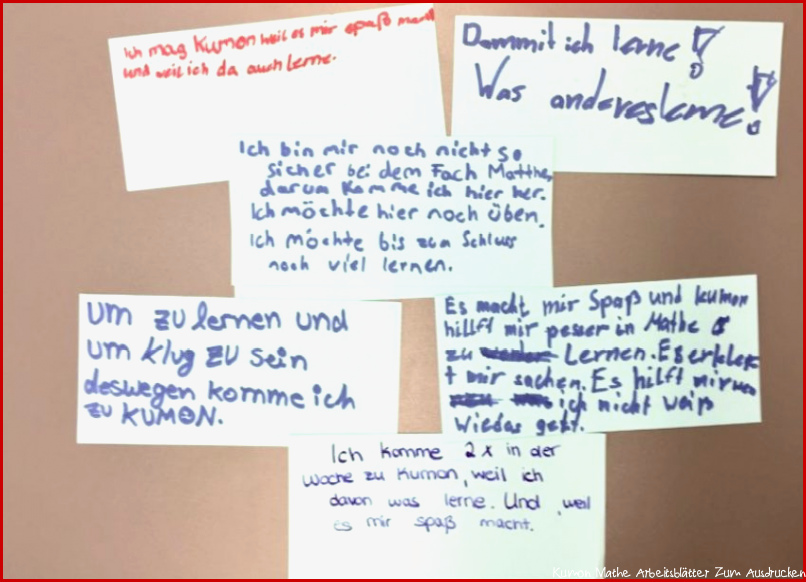 Ich mag Kumon weil es mir spaß macht
und weil ich da auch Lerne.
Dammit ich lerne!
Was andereslerne!
Ich bin mir noch nicht so
sicher bei dem Fach Matthe,
darum komme ich hier her.
Ich möchte hier noch üben.
Ich möchte bis zum Schluss
noch viel lernen.
um zu lernen und
um klug zu sein
deswegen komme ich
zu KUMON.
Es macht mir Spaß und kumon
hillft mir pesser in Mathe
zu Lernen. Es erkler
t mir sachen. Es hilft mir wen
ich nicht waiß
wiedas geht.
Ich komme 2x in der
Woche zu Kumon, weil ich
davon was lerne. Und, weil
es mir spaß macht.
Kumon Mathe Arbeitsblätter Zum Ausdrucken